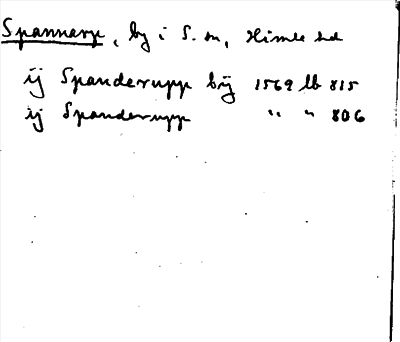 Spannarp, by i S. sn, Himle hd
ij Spanderupp bÿ 1569 lb 815
ij Spanderupp " " 806